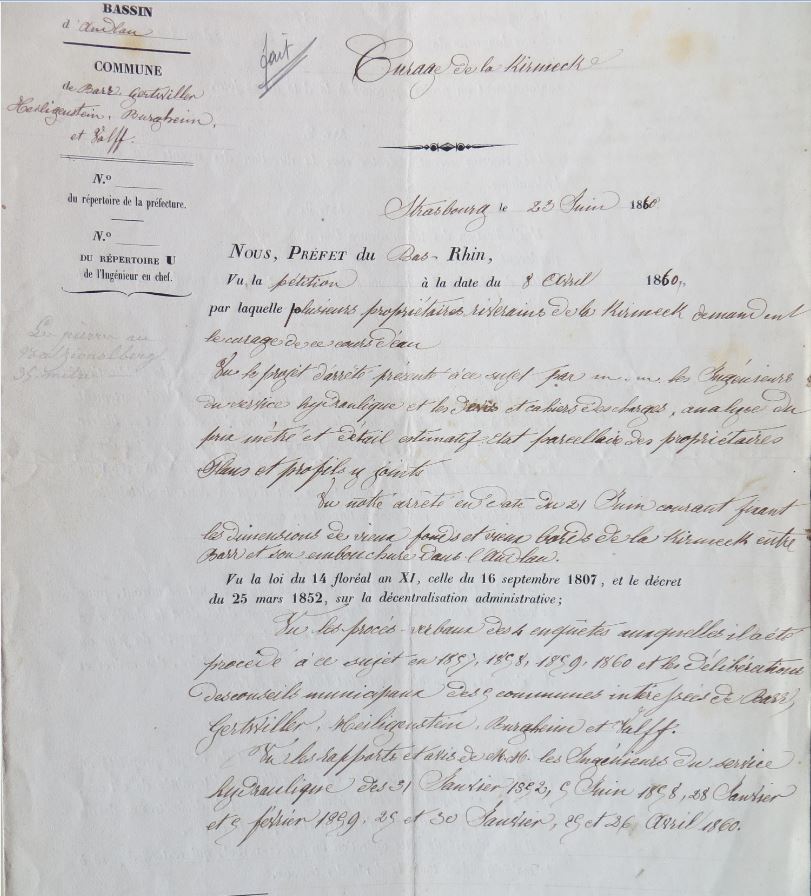 BASSIN
d'Andlau
COMMUNE
de Barr Gertwiller
Heiligenstein, Burgheim,
et Valff.
N.º
du répertoire de la préfecture.
N.º
DU RÉPERTOIRE U
de l'Ingénieur en chef.
fait
Curage de la Kirneck
Strasbourg le 23 Juin 1860
NOUS, PRÉFET du Bas-Rhin,
Vu la pétition à la date du 8 Avril 1860,
par laquelle plusieurs propriétaires riverains de la Kirneck demandent
le curage de ce cours d'eau
Vu le projet d'arrêté présenté à ce sujet par m.m. les Ingénieurs
du service hydraulique et les devis et cahiers des charges, analyse du
prix métré et détail estimatif état parcellaire des propriétaires
Plans et profils y joints
Vu notre arrêté en date du 21 Juin courant fixant
les dimensions de vieux fonds et vieux bords de la Kirneck entre
Barr et son embouchure dans l'Andlau.
Vu la loi du 14 floréal an XI, celle du 16 septembre 1807, et le décret
du 25 mars 1852, sur la décentralisation administrative;
Vu les procès-verbaux des 4 enquêtes auxquelles il a été
procédé à ce sujet en 1857, 1858, 1859, 1860 et les délibérations
des conseils municipaux des 5 communes intéressées de Barr,
Gertwiller, Heiligenstein, Burgheim et Valff.
Vu les rapports et avis de M.M. les Ingénieurs du service
hydraulique des 31 Janvier 1852, 5 Juin 1858, 28 Janvier
et 5 février 1859. 25 et 30 Janvier, 25 et 26 Avril 1860.